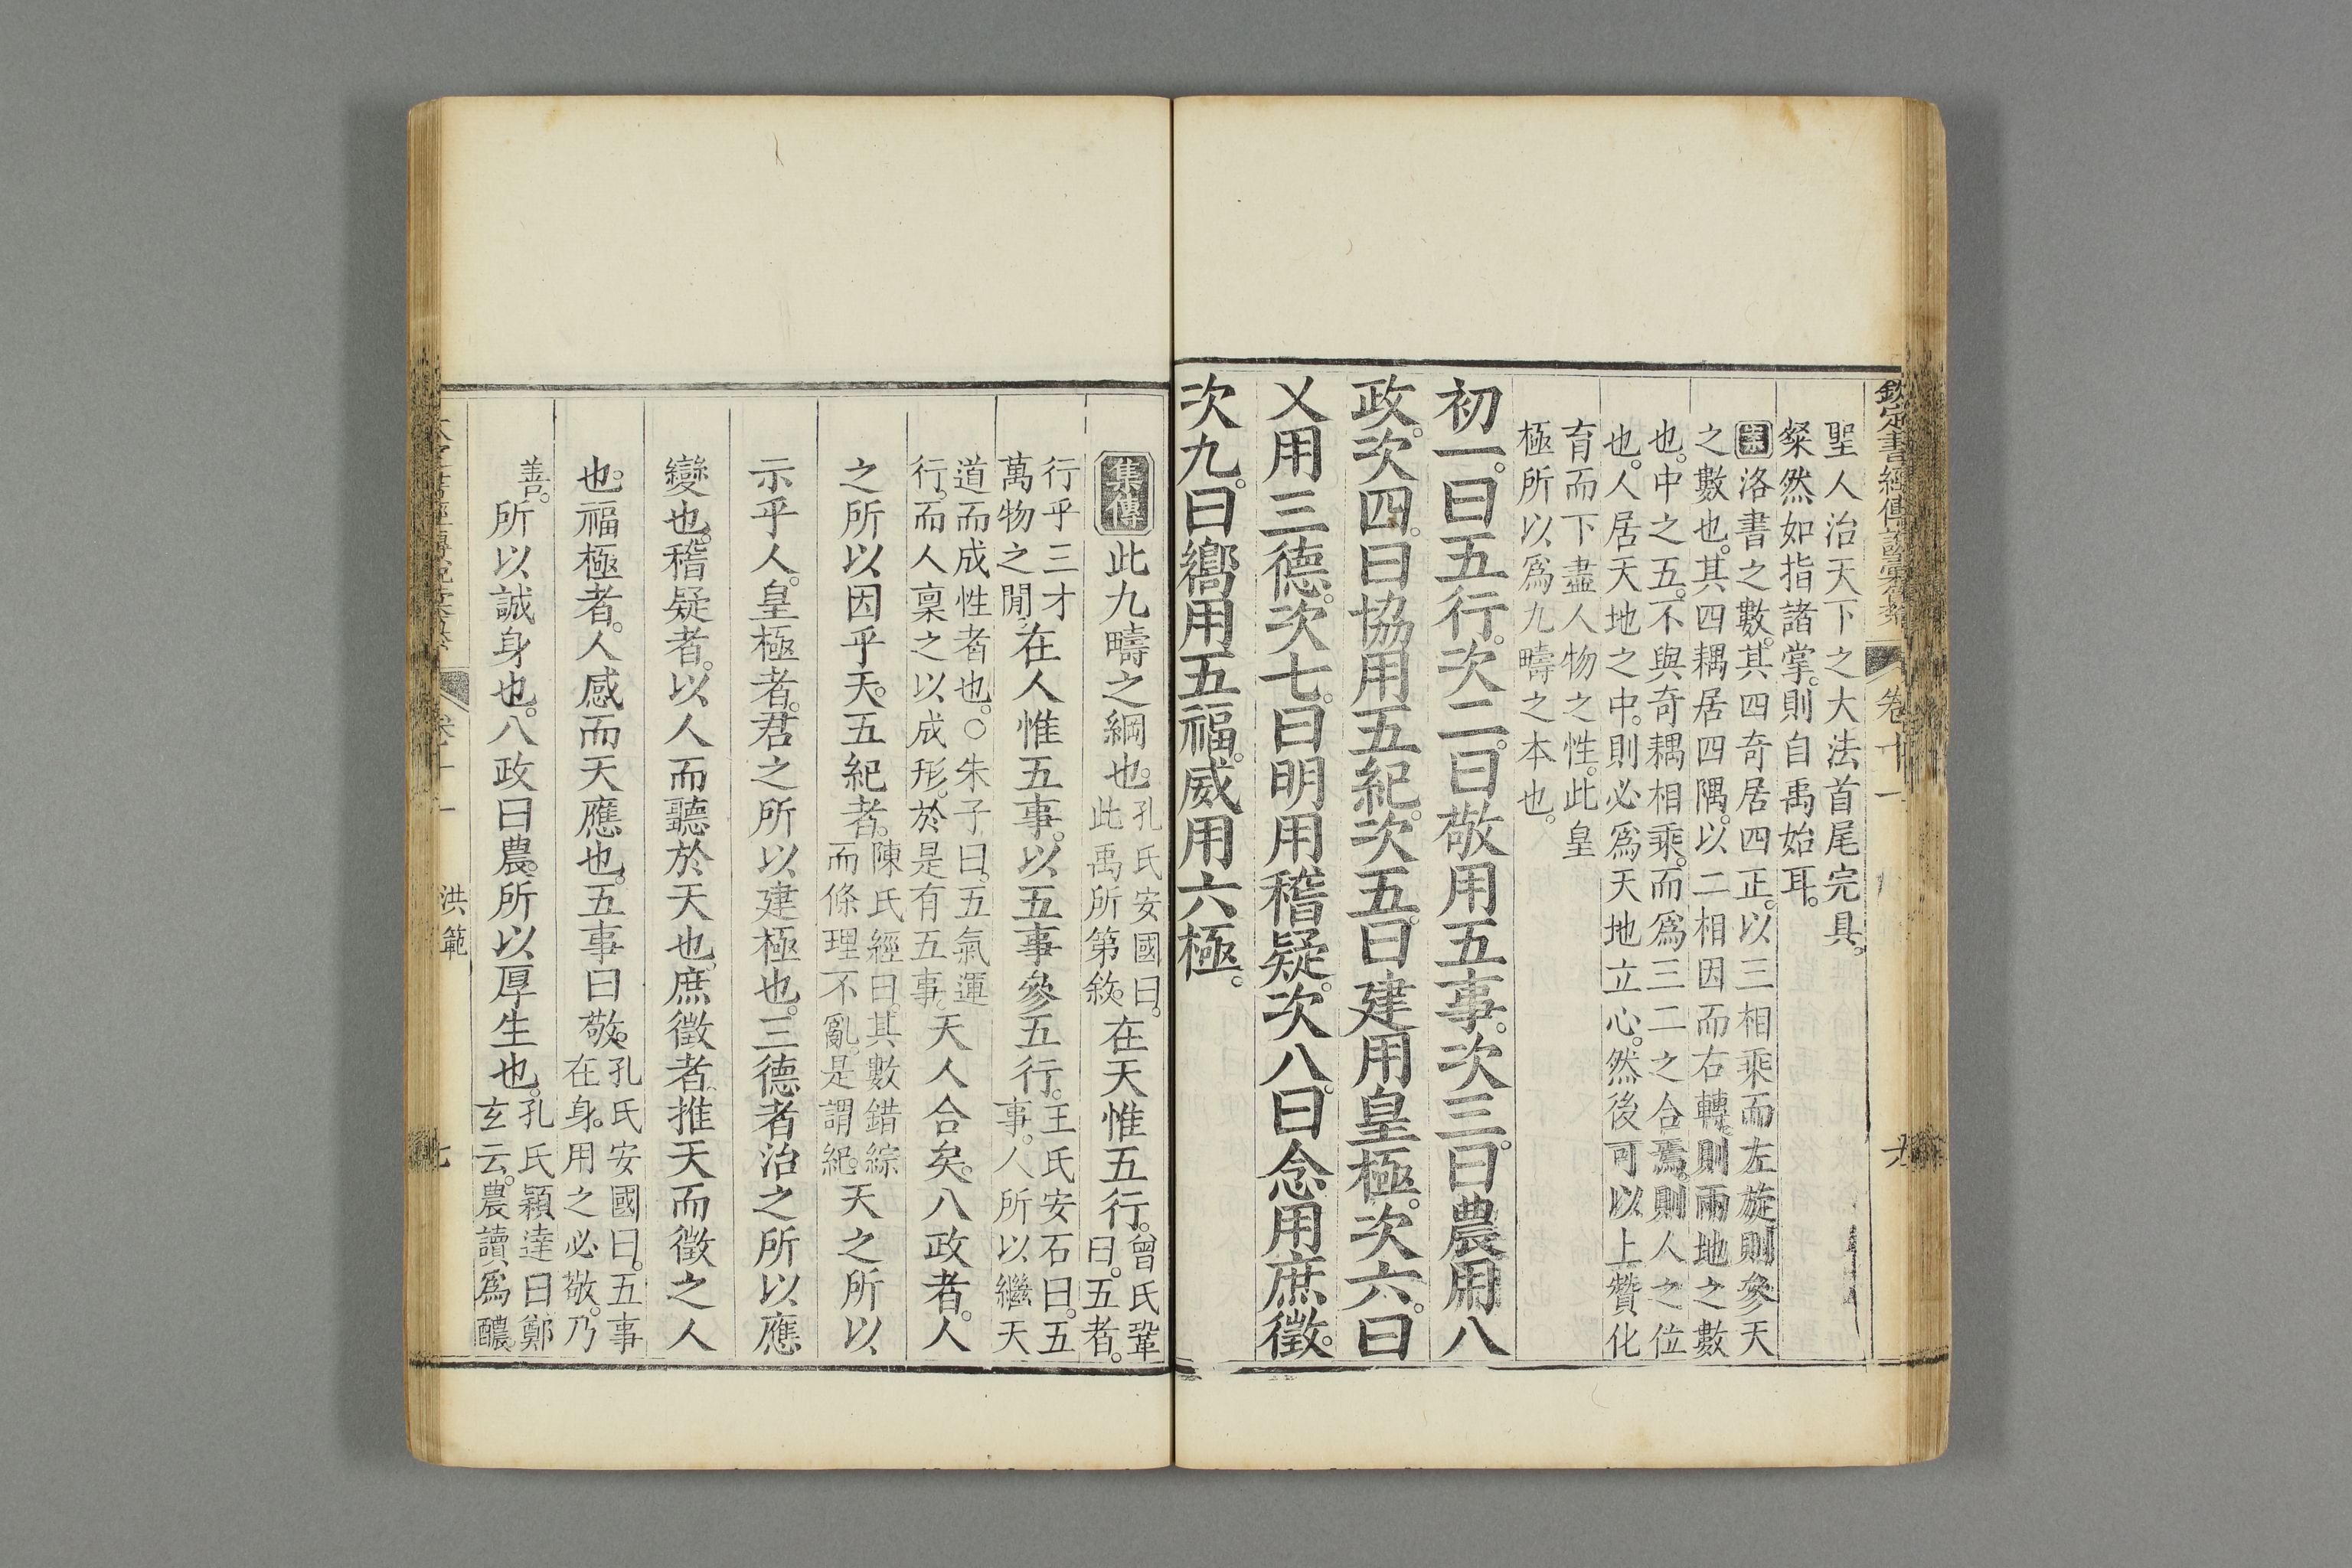 欽定書經傳說彙纂 卷十一
聖人治天下之大法首尾完具。
粲然如指諸掌。則自禹始耳。
洛書之數。其四奇居四正。以三相乘而左旋則參天
之數也。其四耦居四隅。以二相因而右轉。則兩地之數
也。中之五。不與奇耦相乘。而爲三二之合焉。則人之位
也。人居天地之中。則必爲天地立心。然後可以上贊化
育而下盡人物之性。此皇
極所以爲九疇之本也。
初一。曰五行。次二。曰敬用五事。次三。曰農用八
政。次四。曰協用五紀。次五。曰建用皇極。次六。曰
乂用三德。次七。曰明用稽疑。次八。曰念用庶徵。
次九。曰嚮用五福。威用六極。
集傳 此九疇之綱也。孔氏安國曰。此禹所第敘。在天惟五行。曾氏鞏曰。五者。
行乎三才萬物之閒。在人惟五事。以五事參五行。王氏安石曰。五事。人所以繼天
道而成性者也。○朱子曰。五氣運行。而人稟之以成形。於是有五事。天人合矣。八政者。人
之所以因乎天。五紀者。陳氏經曰。其數錯綜而條理不亂。是謂紀。天之所以
示乎人。皇極者。君之所以建極也。三德者治之所以應
變也。稽疑者。以人而聽於天也。庶徵者。推天而徵之人
也。福極者。人感而天應也。五事曰敬。孔氏安國曰。五事在身。用之必敬。乃
善。所以誠身也。八政曰農。所以厚生也。孔氏穎達曰鄭玄云。農讀爲醲。
洪範
七